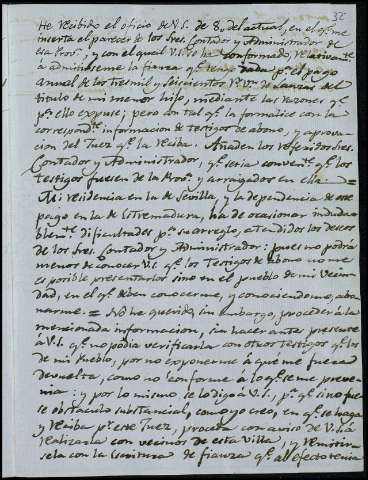 32
He recibido el oficio de V.S. de 8, del actual, en el q.e me
inserta el parecer de los Sres. Contador y Administrador de
esa Prov.a, y con el qual V.S. se ha conformado, relativam.te
á admitirseme la fianza q.e tengo dada p.a el pago
anual de los tres mil y seiscientos r.s v.n de Lanzas del
titulo de mi menor hijo, mediante las razones q.e
p.a ello expuse; pero con tal q.e la formalice con la
correspond.te informacion de testigos de abono, y aprova-
cion del Juez q.e la reciba. Añaden los referidos Sres.
Contador y Administrador, q.e seria conven.te q.e los
testigos fuesen de la Prov.a y arraigados en ella. =
Mi residencia en la de Sevilla, y la dependencia de este
pago en la de Estremadura, ha de ocasionar induda-
blem.te dificultades p.a su arreglo, atendidos los deseos
de los Sres. Contador y Administrador: pues no podrá
menos de conocer V.S. q.e los testigos de abono no me
es posible presentarlos sino en el pueblo de mi vecin-
dad, en el q.e deben conocerme, y conociendome, abo-
narme. = No he querido, sin embargo, proceder á la
mencionada informacion, sin hacer antes presente
á V.S. q.e no podia verificarla con otros testigos q.e los
de mi Pueblo, por no exponerme á que me fuera
devuelta, como no conforme á lo q.e se me preve-
nia: y por lo mismo se lo digo á V.S., p.a q.e si no fue-
se obstaculo substancial, como yo creo, en q.e se haga
y reciba p.r este Juez, proceda con aviso de V.S. á
realizarla con vecinos de esta Villa, y remitir-
sela con la Escritura de fianza q.e al efecto tenia